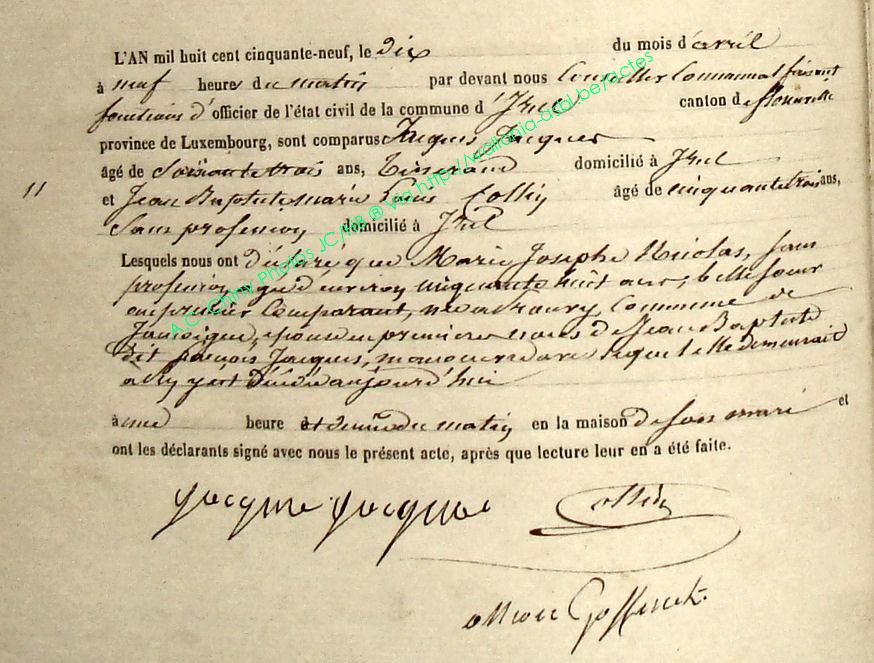 L'AN mil huit cent cinquante-neuf, le dix du mois d'avril
à neuf heures du matin par devant nous Conseiller Communal faisant
fonctions d'officier de l'état civil de la commune d'Izel canton de Florenville
province de Luxembourg, sont comparus Jacques Jacques
âgé de soixante trois ans, Tisserand domicilié à Izel
11 et Jean Baptiste Marie Louis Collin âgé de cinquante trois ans,
sans profession domicilié à Izel
Lesquels nous ont déclaré que Marie Josephe Nicolas, sans
profession agée d'environ cinquante huit ans, belle soeur
au premier Comparant, née à Commune de
Jamoigne, épouse en premières noces de Jean Baptiste
dit François Jacques, manoeuvre avec lequel elle demeurait
à Izel y est décédée aujourd'hui
à une heure et demie du matin en la maison de son mari et
ont les déclarants signé avec nous le présent acte, après que lecture leur en a été faite.
jacque jacque Collin
Goffinet
A.C. Chiny Photos JC/MB @ via http://wallonia-asbl.be/actes